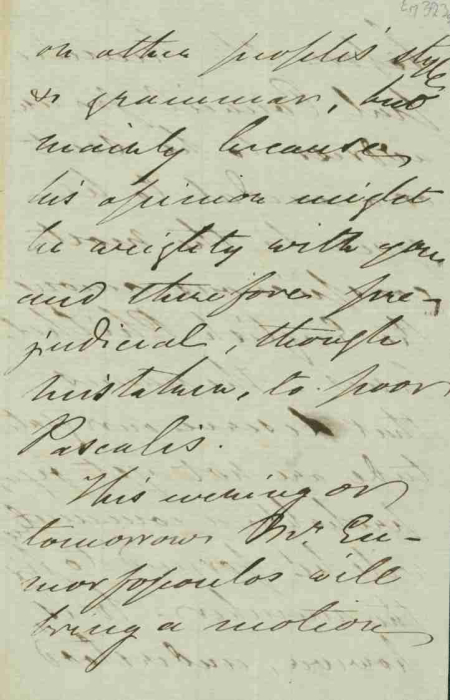 on other people's style
& grammar, but
mainly because
his opinion might
be weighty with you
and therefore pre-
judicial, though
mistaken, to poor
Pascalis.
This evening or
tomorrow Mr. Eu-
morfopoulos will
bring a motion